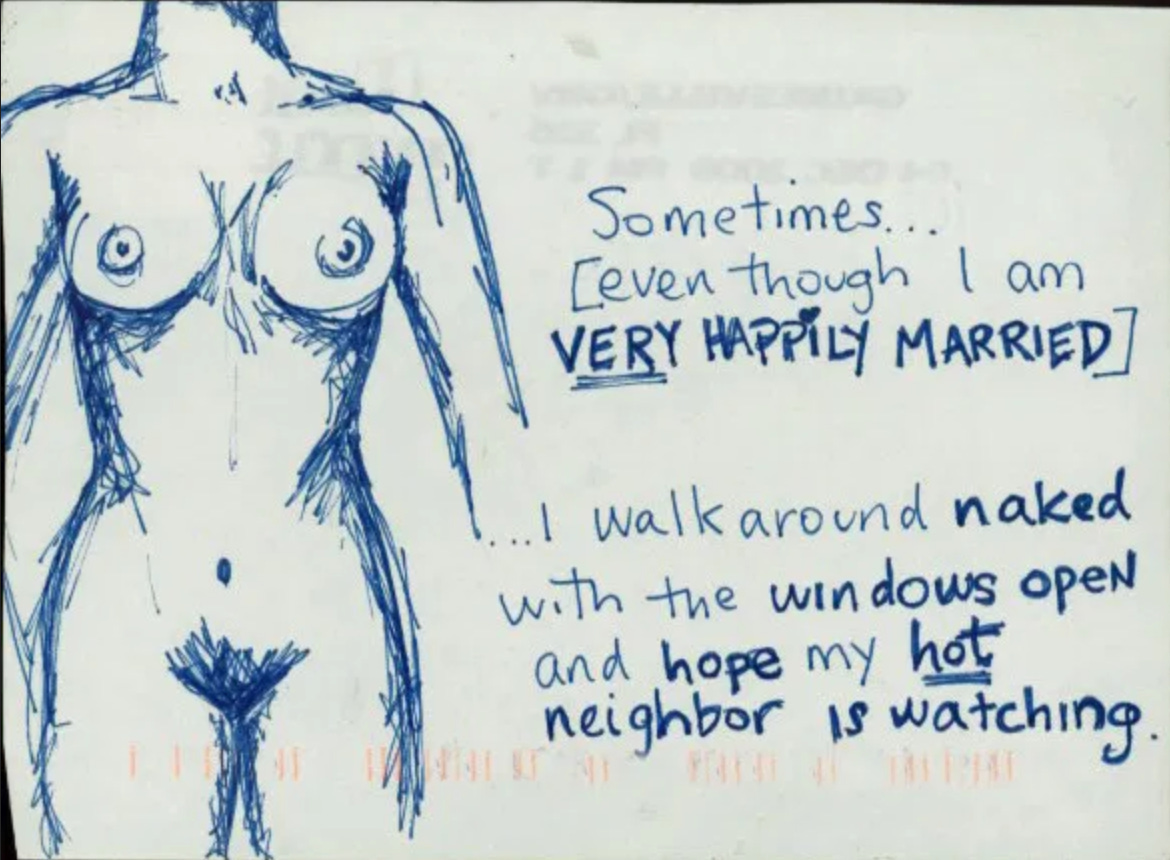 Sometimes...
[even though I am
VERY HAPPiLY MARRIED]
...I walk around naked
with the windows open
and hope my hot
neighbor is watching.